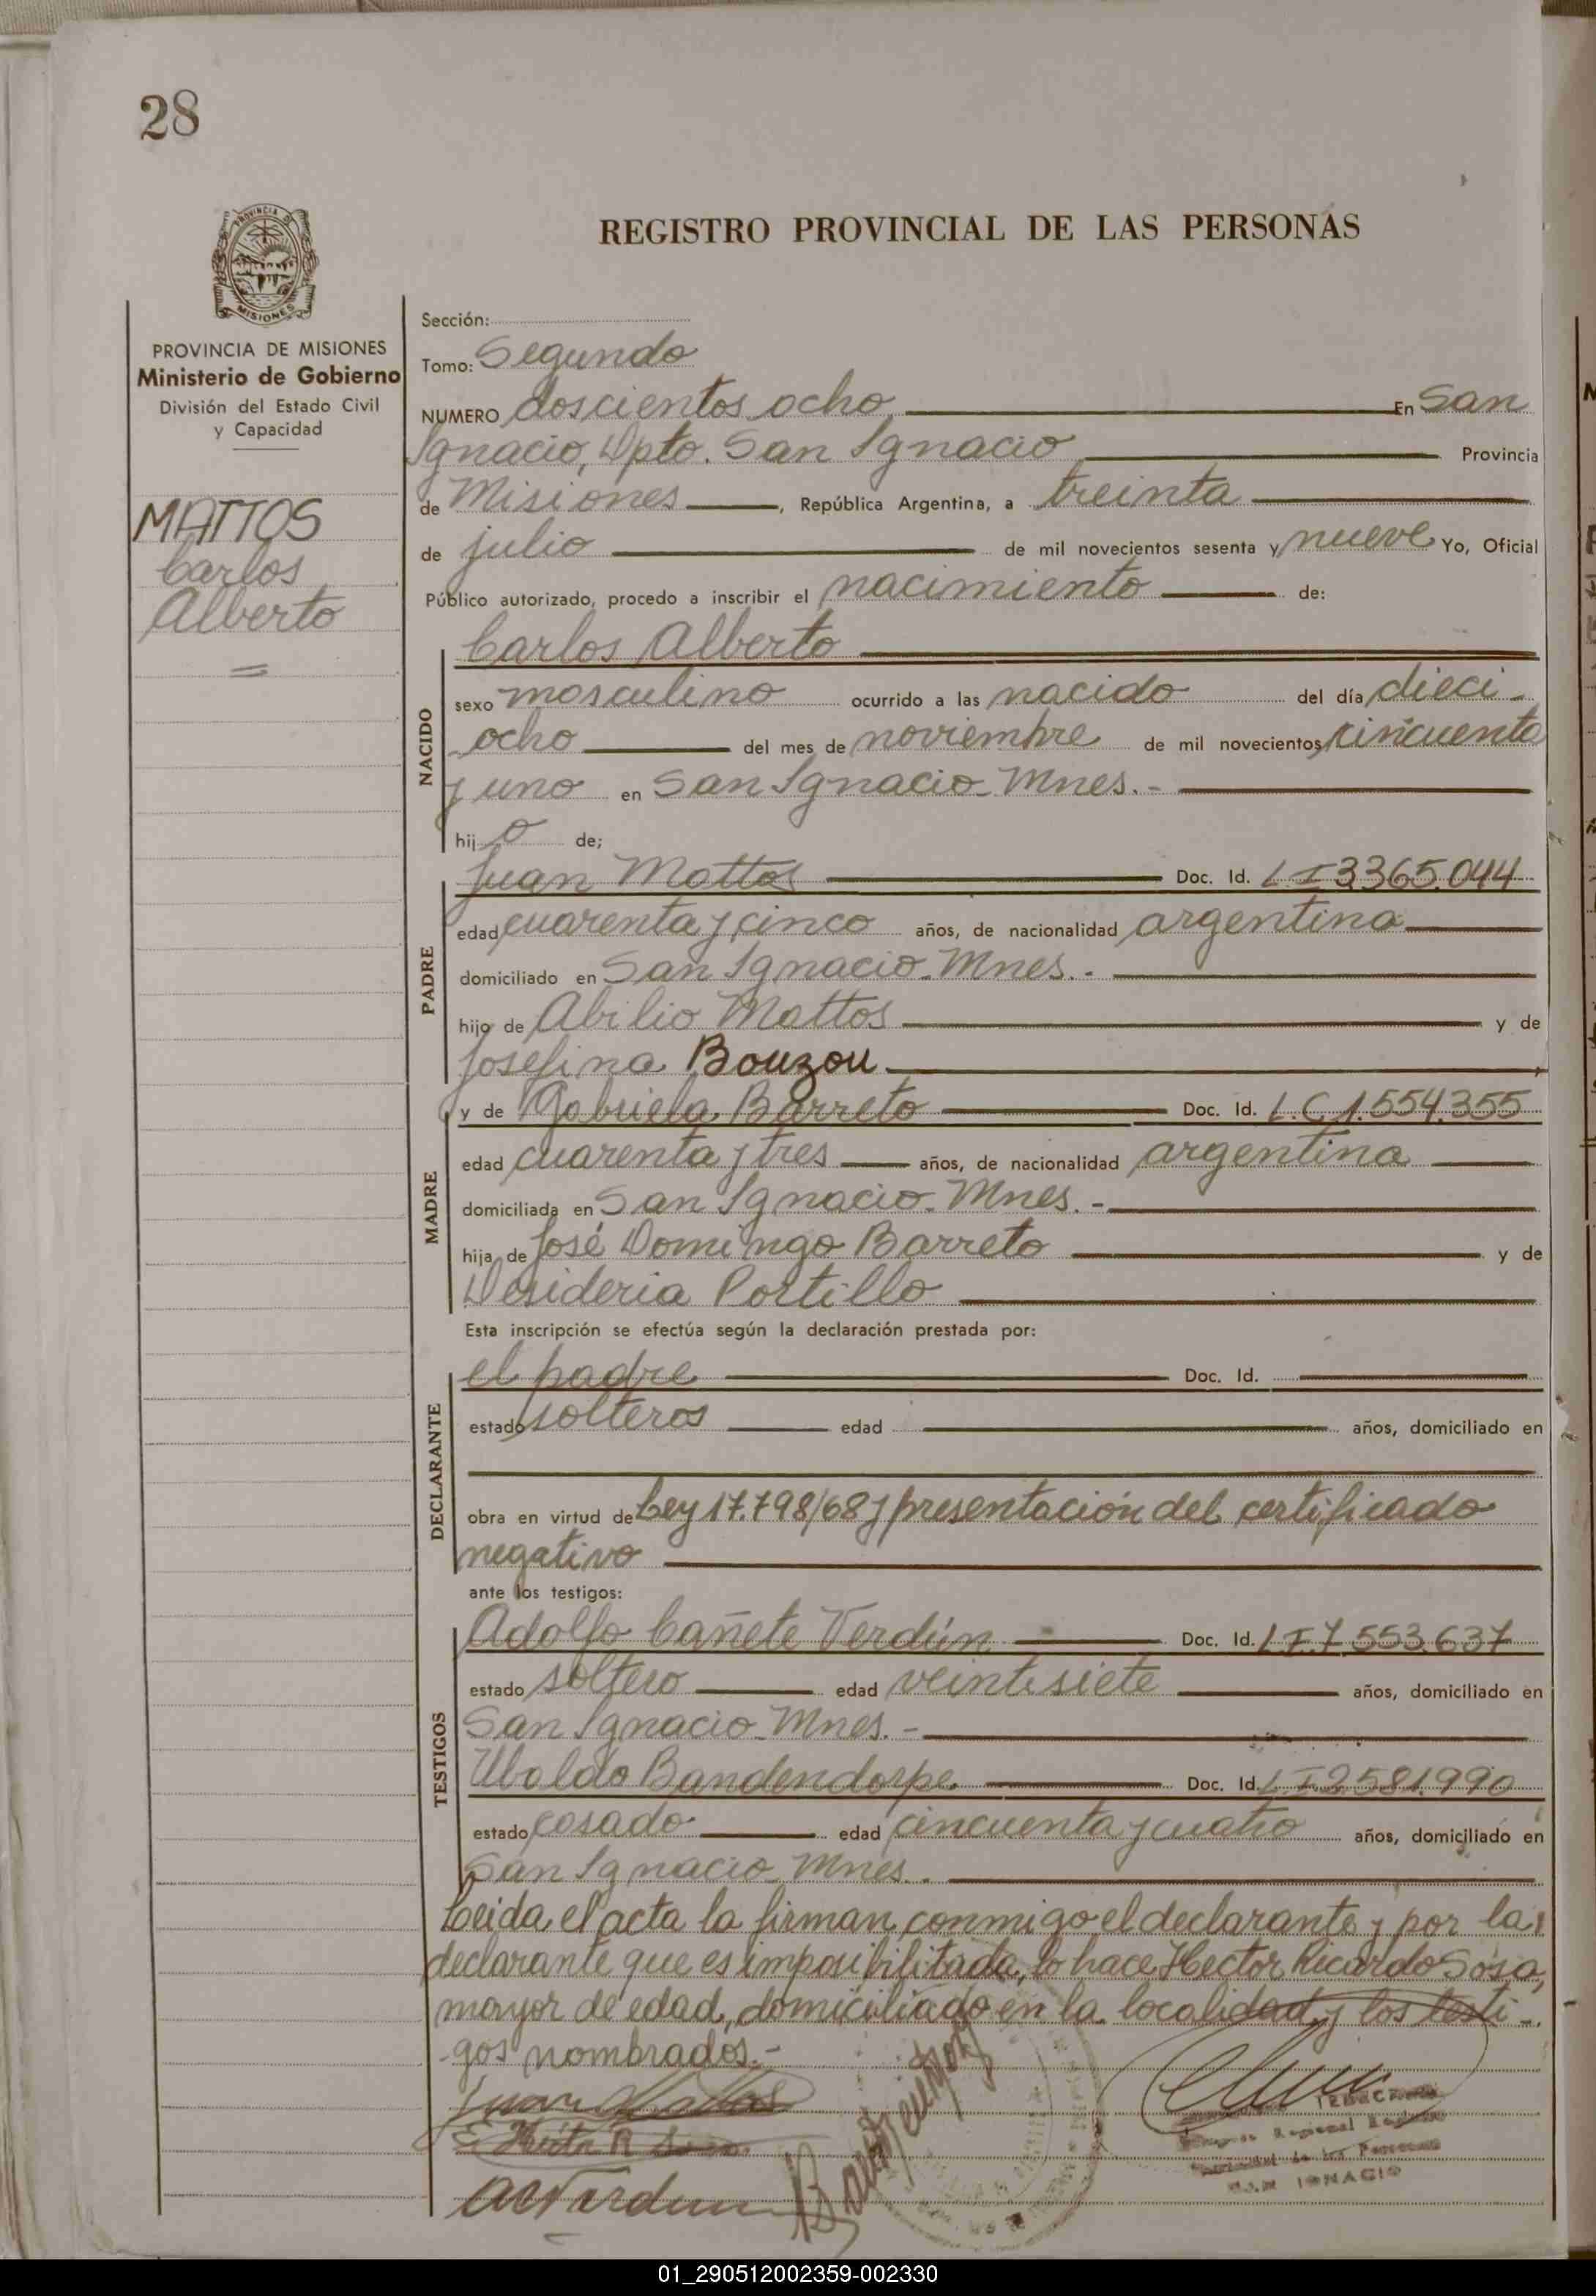 28
REGISTRO PROVINCIAL DE LAS PERSONAS
PROVINCIA DE MISIONES
Ministerio de Gobierno
División del Estado Civil
y Capacidad
MATTOS
Carlos
Alberto
Sección:
Tomo: Segundo
NUMERO doscientos ocho En San
Ignacio, Dpto. San Ignacio Provincia
de Misiones, República Argentina, a treinta
de julio de mil novecientos sesenta y nueve Yo, Oficial
Público autorizado, procedo a inscribir el nacimiento de:
Carlos Alberto
NACIDO
sexo masculino ocurrido a las nacido del día dieci-
ocho del mes de noviembre de mil novecientos cincuenta
y uno en San Ignacio-Mnes.-
hij o de;
PADRE
Juan Mattos Doc. Id. L I 3365.044
edad cuarenta y cinco años, de nacionalidad argentina
domiciliado en San Ignacio-Mnes.-
hijo de Abilio Mattos y de
Josefina Bouzou
MADRE
y de Gabriela Barreto Doc. Id. L.C.1.554.355
edad cuarenta y tres años, de nacionalidad argentina
domiciliada en San Ignacio-Mnes.-
hija de José Domingo Barreto y de
Desideria Portillo
Esta inscripción se efectúa según la declaración prestada por:
DECLARANTE
el padre Doc. Id.
estado solteros edad años, domiciliado en
obra en virtud de Ley 17.798/68 y presentación del certificado
negativo
ante los testigos:
TESTIGOS
Adolfo Cañete Verdún Doc. Id. L.I.7.553.637
estado soltero edad veintisiete años, domiciliado en
San Ignacio-Mnes.-
Ubaldo Bandendorpe Doc. Id. L.I.2.581.990
estado casado edad cincuenta y cuatro años, domiciliado en
San Ignacio Mnes.
Leida el acta la firman conmigo el declarante y por la
declarante que es imposibilitada, lo hace Hector Ricardo Sosa,
mayor de edad, domiciliado en la localidad y los testi-
gos nombrados.-
Juan Mattos
Regional
de las Personas
SAN IGNACIO
01_290512002359-002330